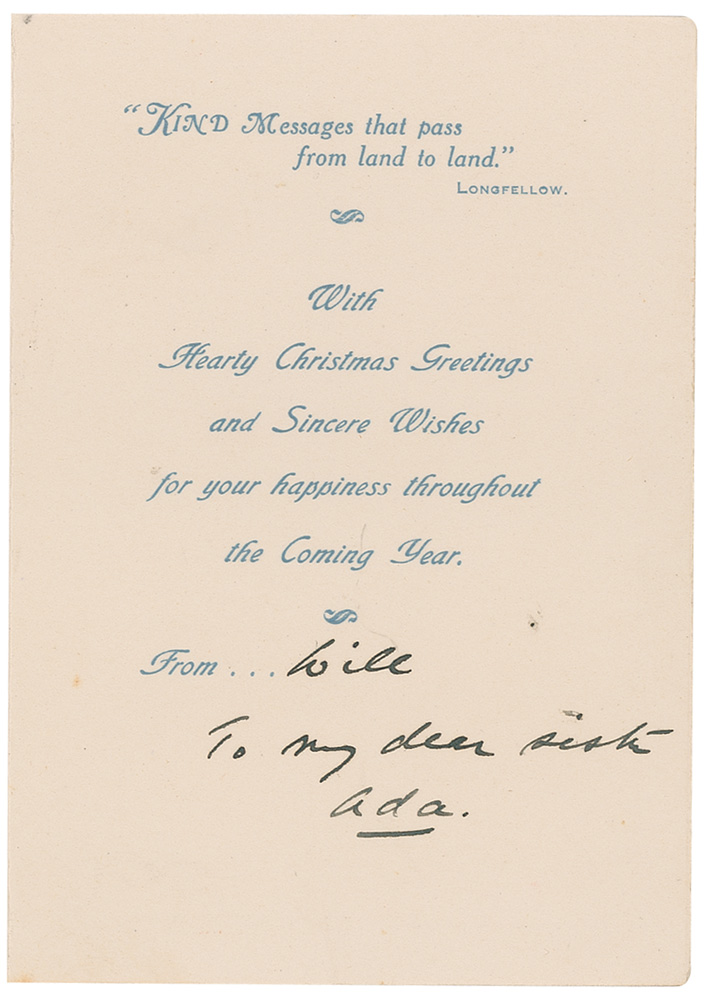 “KIND Messages that pass
from land to land.”
LONGFELLOW.
With
Hearty Christmas Greetings
and Sincere Wishes
for your happiness throughout
the Coming Year.
From ... Will
To my dear sister
Ada.